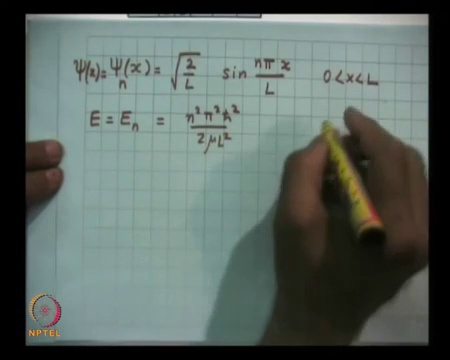 ψ(x) = ψn(x) = √(2/L) sin nπx/L 0 < x < L
E = En = n²π²ħ²/2μL²
NPTEL